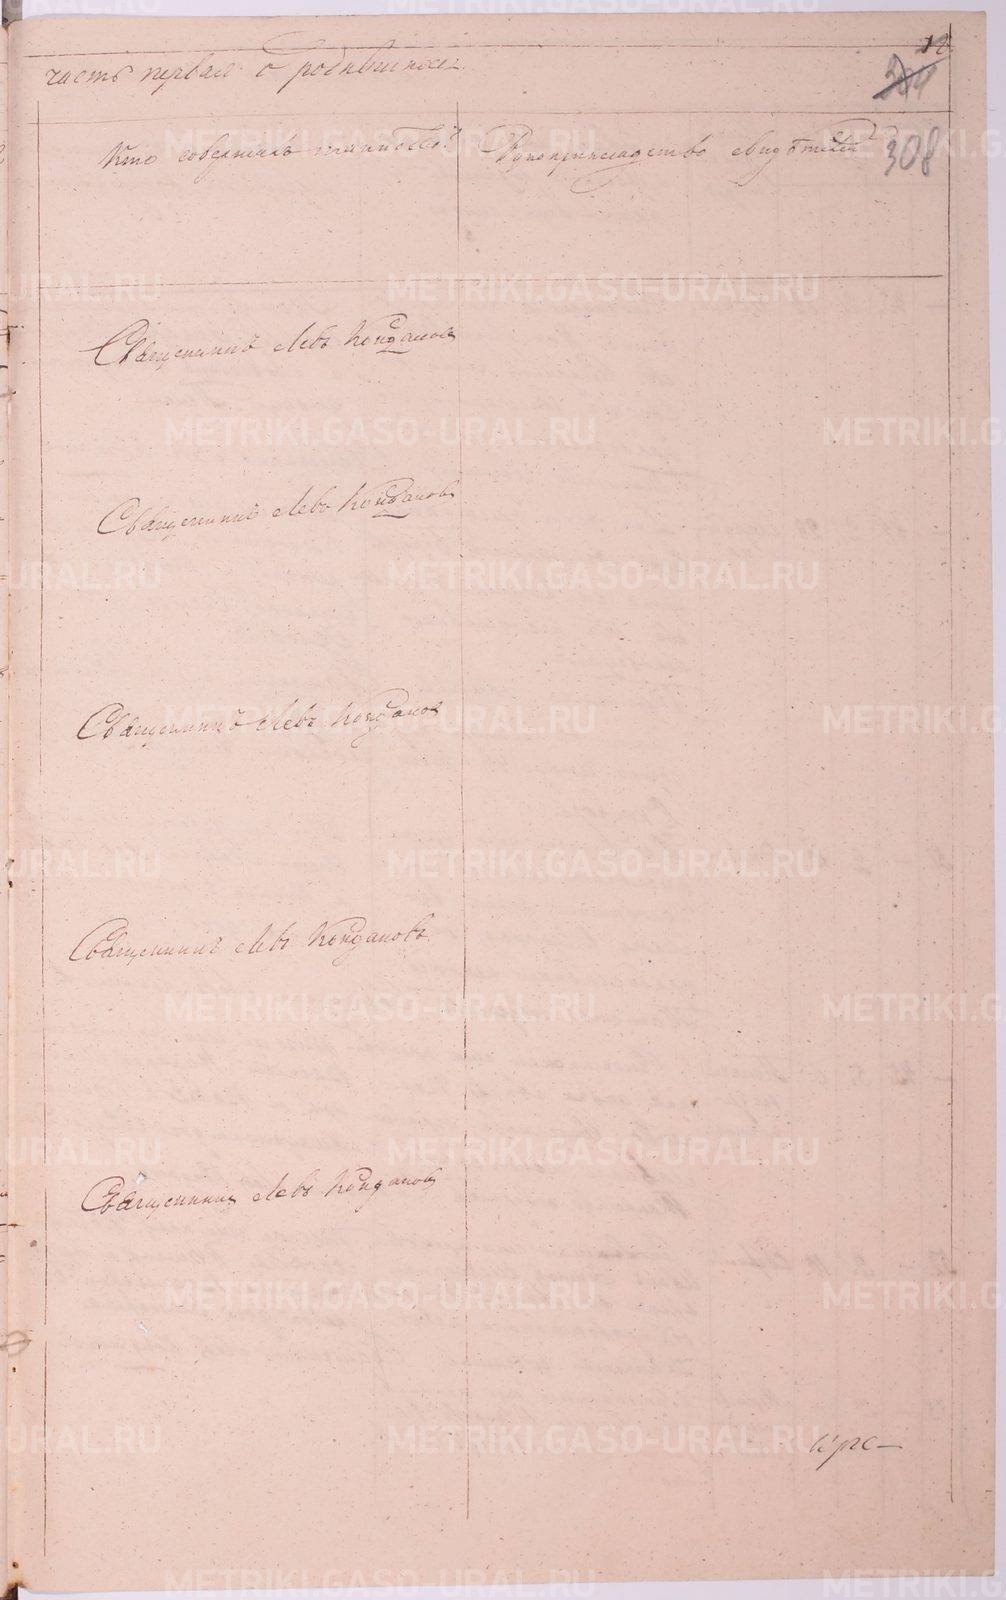 12
часть первая о родившихся
301
Кто совершалъ таинство?
Рукоприкладство свидѣтелей
308
Священникъ Левъ Конданов
Священникъ Левъ Кондановъ
Священникъ Левъ Конданов
Священникъ Левъ Кондановъ.
Священникъ Левъ Кондановъ
METRIKI.GASO-URAL.RU